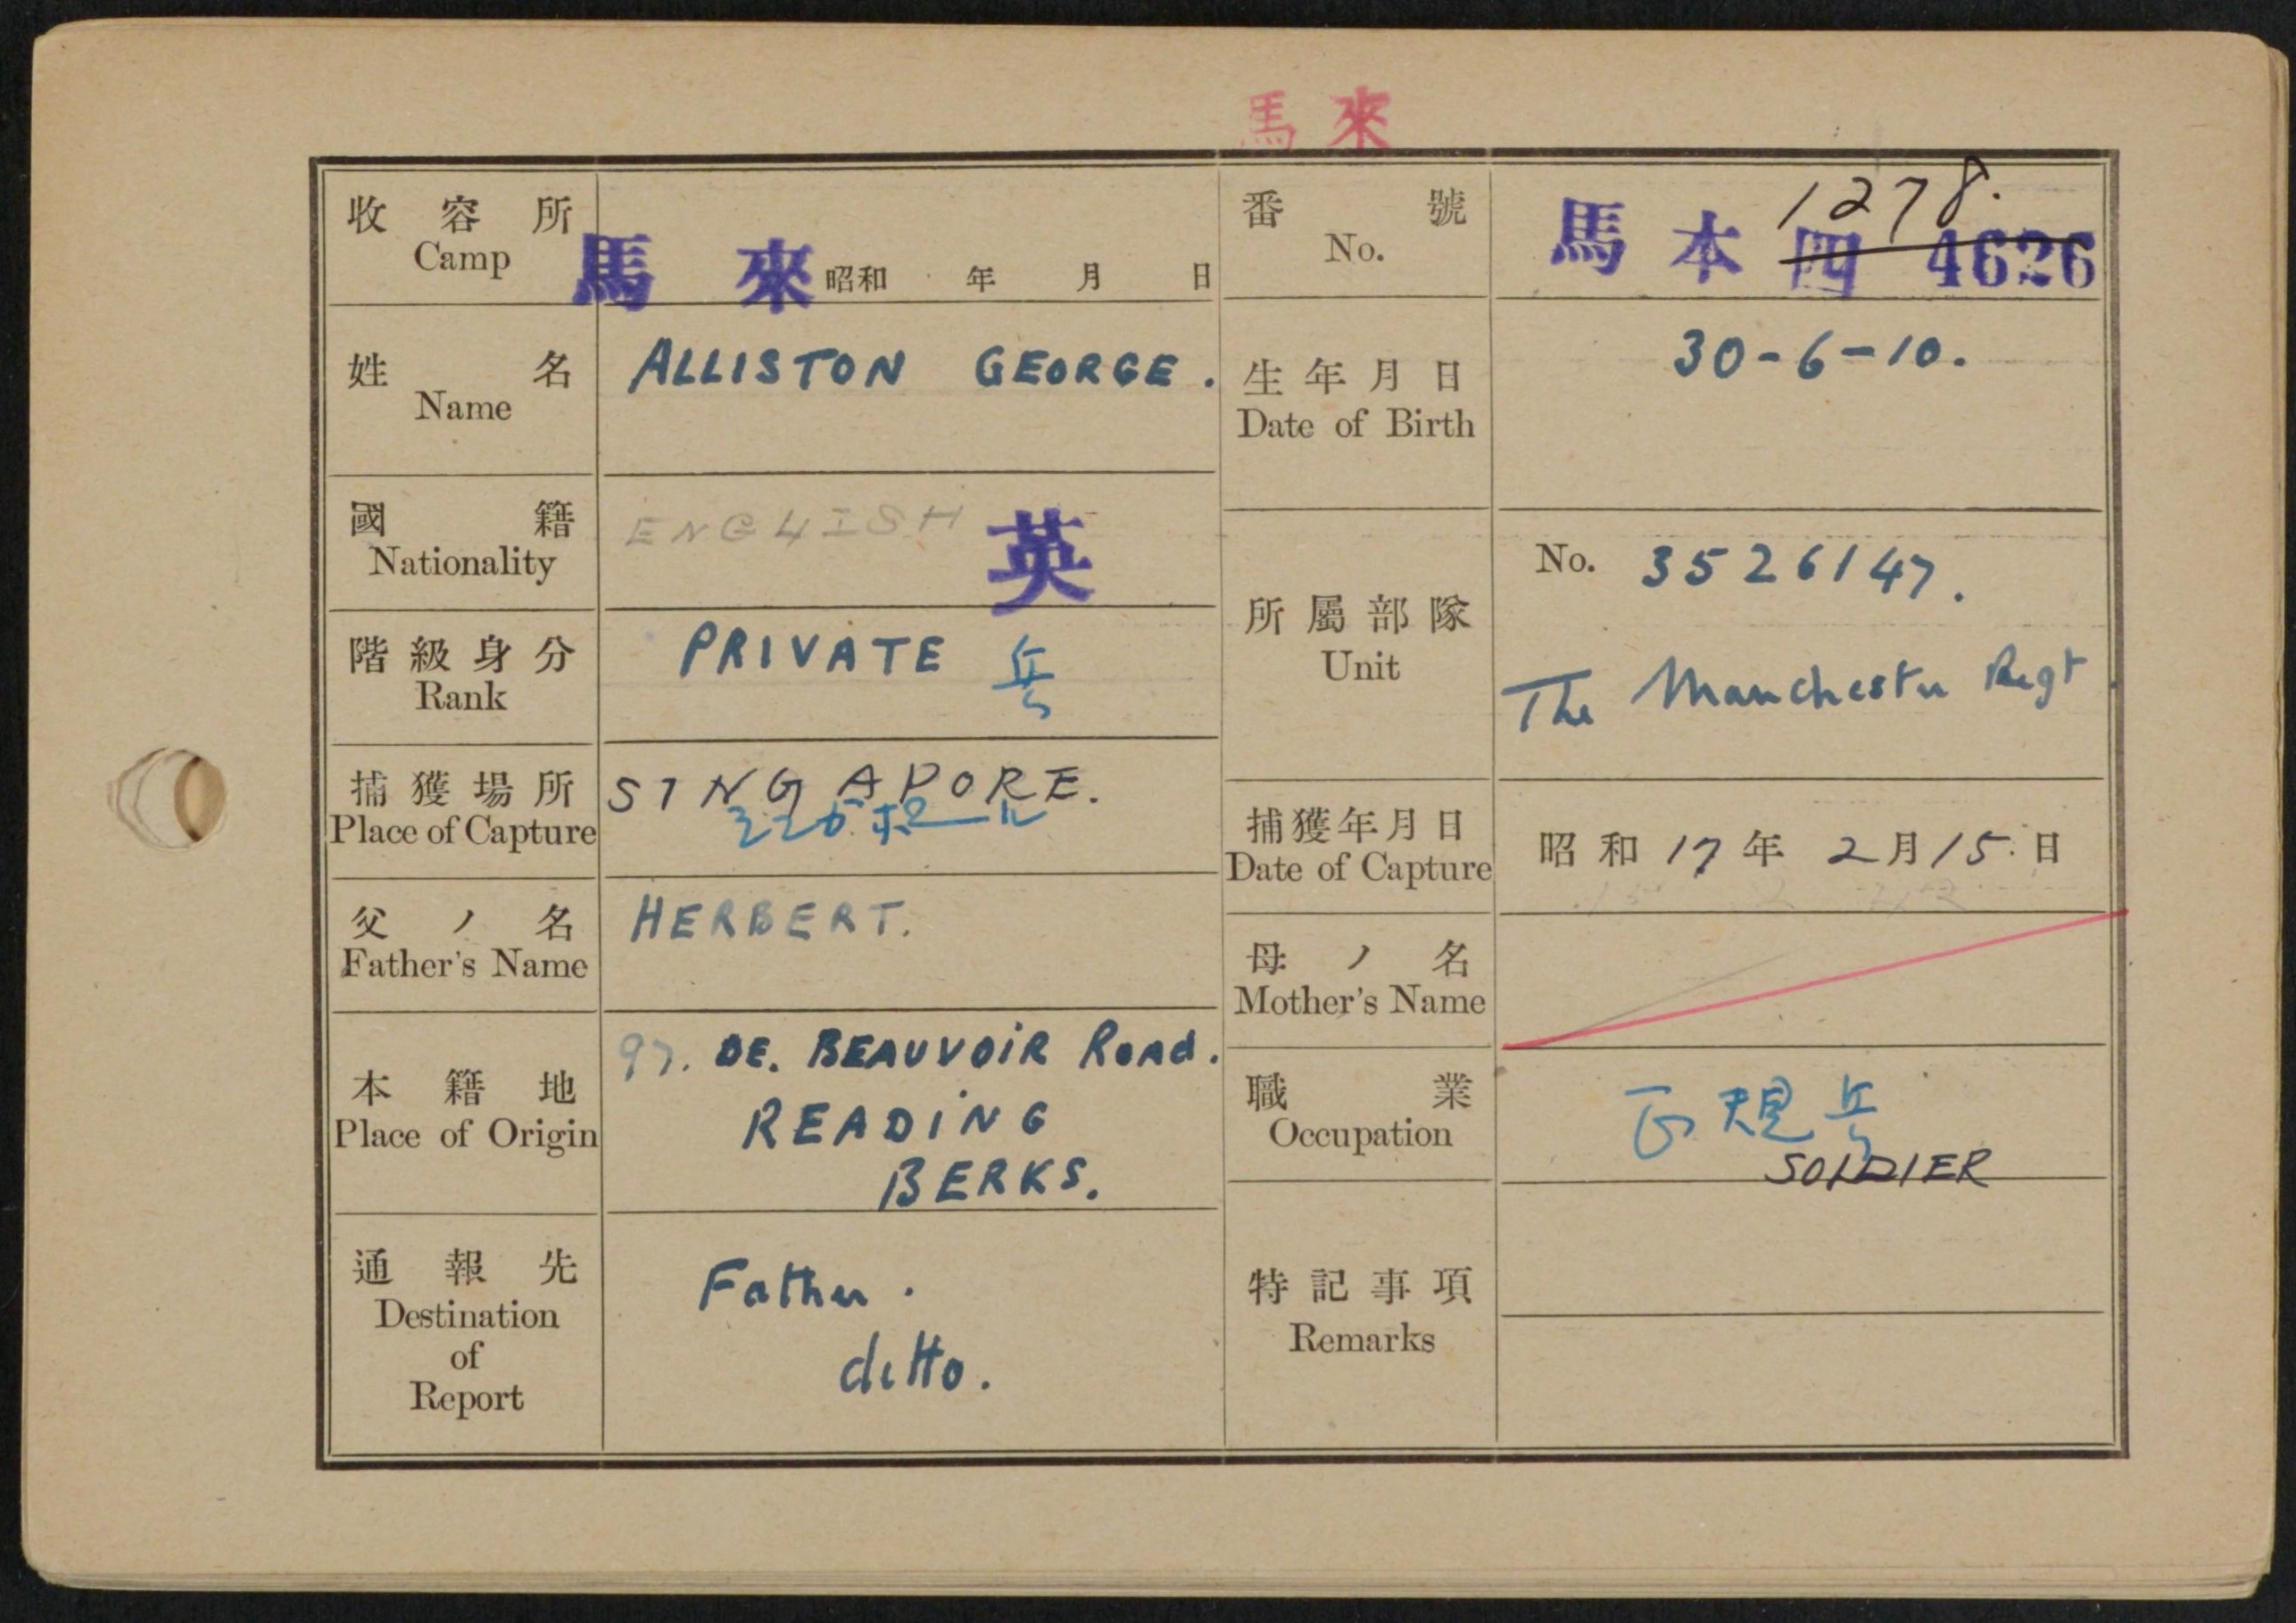 馬來
收容所
Camp
馬來 昭和 年 月 日
番號
No.
1278.
馬本四 4626
姓名
Name
ALLISTON GEORGE.
生年月日
Date of Birth
30-6-10.
國籍
Nationality
ENGLISH 英
階級身分
Rank
PRIVATE 兵
所屬部隊
Unit
No. 3526147.
The Manchester Regt
捕獲場所
Place of Capture
SINGAPORE.
捕獲年月日
Date of Capture
昭和17年2月15日
父ノ名
Father's Name
HERBERT.
母ノ名
Mother's Name
本籍地
Place of Origin
97. DE. BEAUVOIR ROAD.
READING
BERKS.
職業
Occupation
正規兵
SOLDIER
通報先
Destination
of
Report
Father.
ditto.
特記事項
Remarks